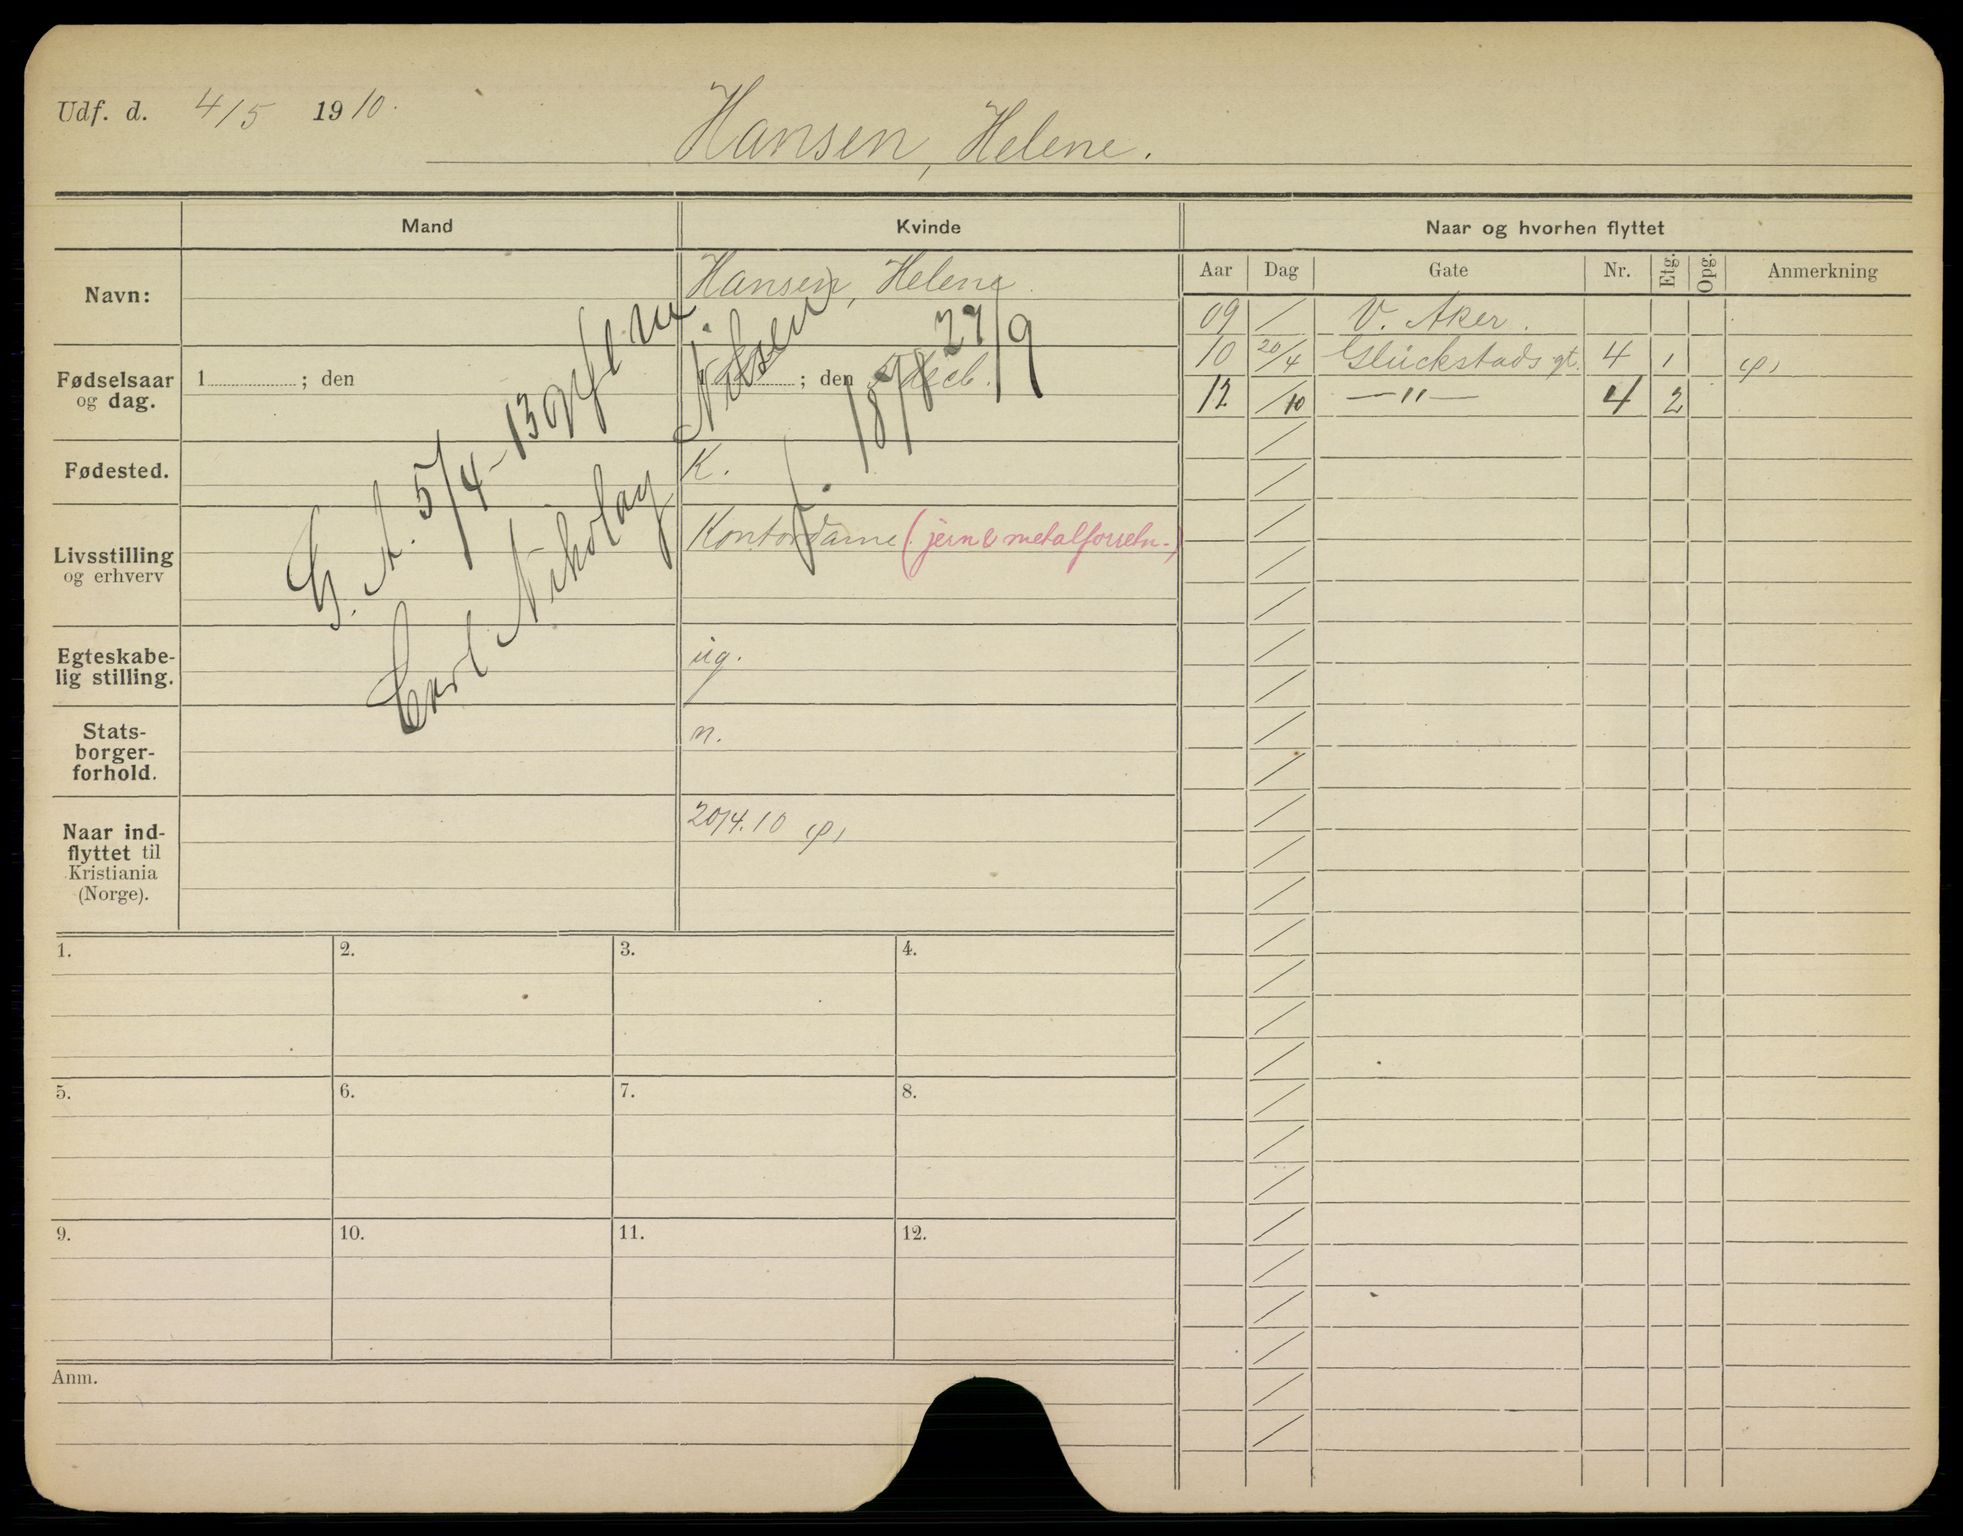 Udf. d. 4/5 1910.
Hansen, Helene.
Mand
Kvinde
Naar og hvorhen flyttet
Aar Dag Gate Nr. Etg. Opg. Anmerkning
Navn:
Hansen, Helene.
09 / V. Aker.
10 20/4 Glückstads gt. 4 1 (P)
12 /10 —"— 4 2
Fødselsaar
og dag.
1 ; den
1 ; den
Fødested.
K.
Livsstilling
og erhverv
Kontordame (jern & metalforretn.)
Egteskabe-
lig stilling.
ug.
Stats-
borger-
forhold.
n.
Naar ind-
flyttet til
Kristiania
(Norge).
20/4.10 (P)
G. A. 5/4-13
Carl Nikolay Nilsen
f. 1878 27/9
1. 2. 3. 4.
5. 6. 7. 8.
9. 10. 11. 12.
Anm.